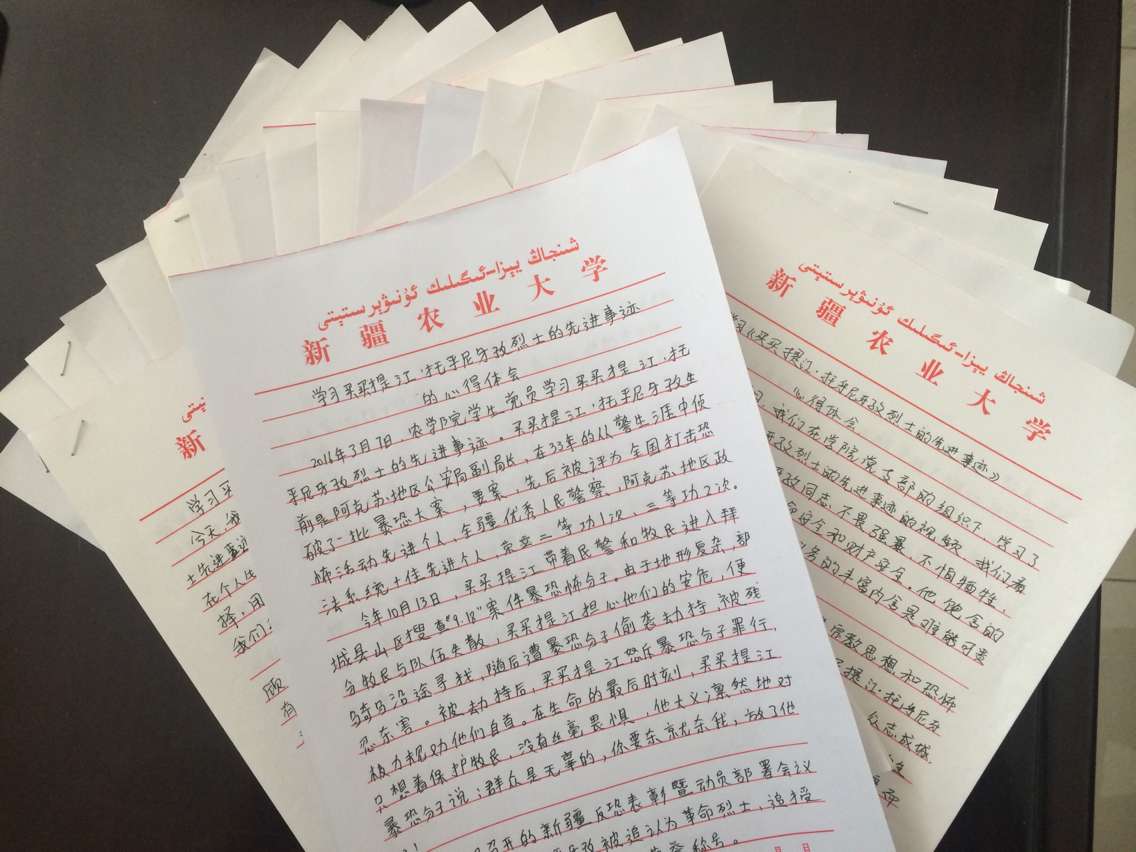 شىنجاڭ يېزا-ئىگىلىك ئۇنىۋېرسىتېتى
新疆农业大学
学习买买提江·托乎尼牙孜烈士的先进事迹
的心得体会
2016年3月7日,农学院学生党员学习买买提江·托
乎尼牙孜烈士的先进事迹。买买提江·托乎尼牙孜生
前是阿克苏地区公安局副局长,在33年的从警生涯中侦
破了一批暴恐大案,要案,先后被评为全国打击恐
怖活动先进个人,全疆优秀人民警察,阿克苏地区政
法系统十佳先进个人,荣立二等功1次、三等功2次。
今年10月13日,买买提江带着民警和牧民进入拜
城县山区搜查"9.18"案件暴恐怖分子。由于地形复杂,部
分牧民与队伍失散,买买提江担心他们的安危,便
骑马沿途寻找,随后遭暴恐分子偷袭劫持,被残
忍杀害。被劫持后,买买提江怒斥暴恐分子罪行,
极力规劝他们自首。在生命的最后时刻,买买提江
只想着保护牧民,没有丝毫畏惧,他大义凛然地对
暴恐分子说:群众是无辜的,你要杀就杀我,放了他
召开的新疆反恐表彰暨动员部署会议
牙孜被追认为革命烈士,追授
荣誉称号。
新
学习买
今天,
士先进事迹
在个人生
择,用
我们
顾
有
شىنجاڭ يېزا-ئىگىلىك ئۇنىۋېرسىتېتى
新疆农业大学
学习《买买提江·托乎尼牙孜烈士的先进事迹》
心得体会
我们在学院党支部的组织下,学习了
牙孜烈士的先进事迹的视频。我们看
孜同志,不畏强暴、不怕牺牲,
命安全和财产安全。他饱含的
务的丰富内含是难能可贵
宗教思想和恐怖
买提江·托乎尼牙
众志成城